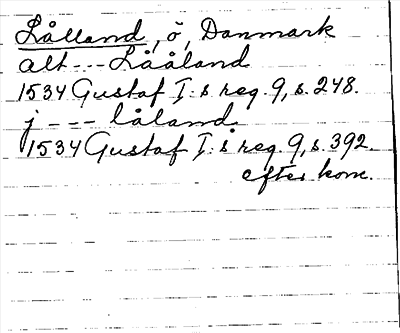 Lålland, ö, Danmark
alt --- Lååland
1534 Gustaf I:s reg. 9, s. 248.
j --- låland
1534 Gustaf I:s reg. 9, s. 392.
efter kom.